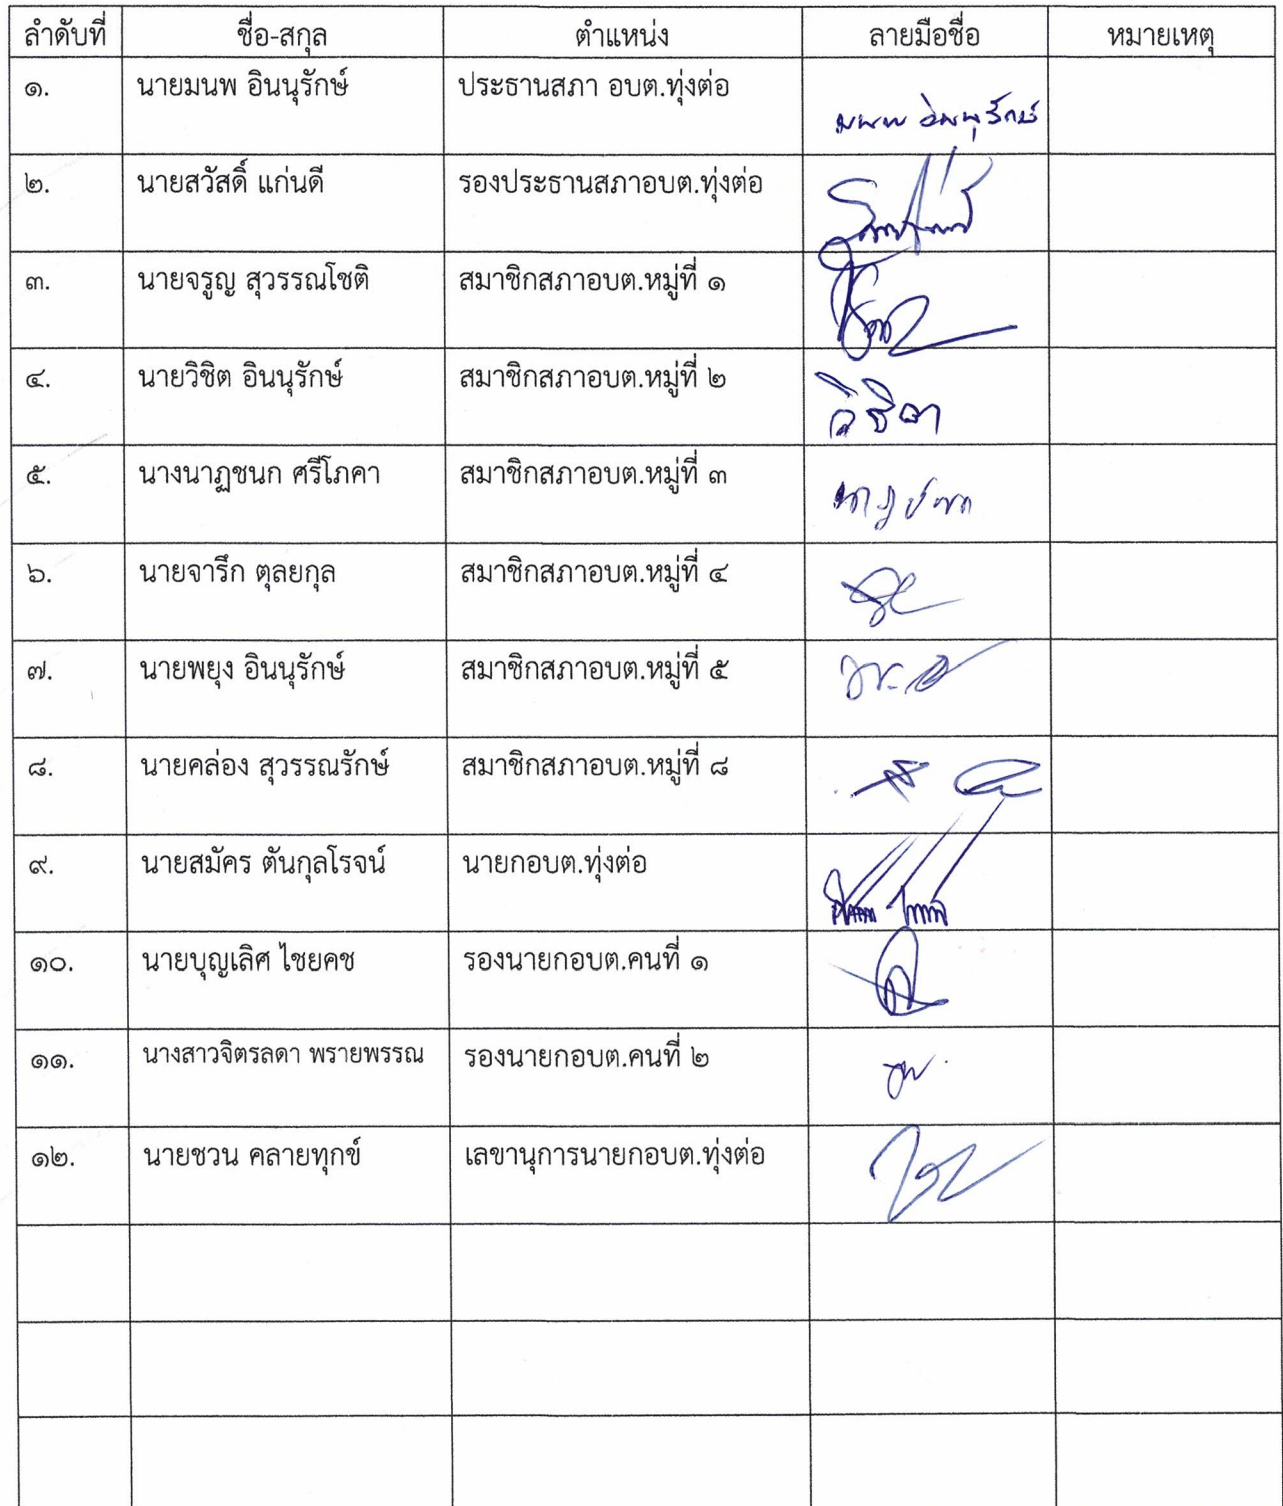 ลำดับที่ ชื่อ-สกุล ตำแหน่ง ลายมือชื่อ หมายเหตุ
๑. นายมนพ อินนุรักษ์ ประธานสภา อบต.ทุ่งต่อ มนพ อินนุรักษ์
๒. นายสวัสดิ์ แก่นดี รองประธานสภาอบต.ทุ่งต่อ
๓. นายจรูญ สุวรรณโชติ สมาชิกสภาอบต.หมู่ที่ ๑
๔. นายวิชิต อินนุรักษ์ สมาชิกสภาอบต.หมู่ที่ ๒ วิชิต
๕. นางนาฏชนก ศรีโภคา สมาชิกสภาอบต.หมู่ที่ ๓ นาฏชนก
๖. นายจารึก ตุลยกุล สมาชิกสภาอบต.หมู่ที่ ๔
๗. นายพยุง อินนุรักษ์ สมาชิกสภาอบต.หมู่ที่ ๕
๘. นายคล่อง สุวรรณรักษ์ สมาชิกสภาอบต.หมู่ที่ ๘
๙. นายสมัคร ตันกุลโรจน์ นายกอบต.ทุ่งต่อ
๑๐. นายบุญเลิศ ไชยคช รองนายกอบต.คนที่ ๑
๑๑. นางสาวจิตรลดา พรายพรรณ รองนายกอบต.คนที่ ๒
๑๒. นายชวน คลายทุกข์ เลขานุการนายกอบต.ทุ่งต่อ